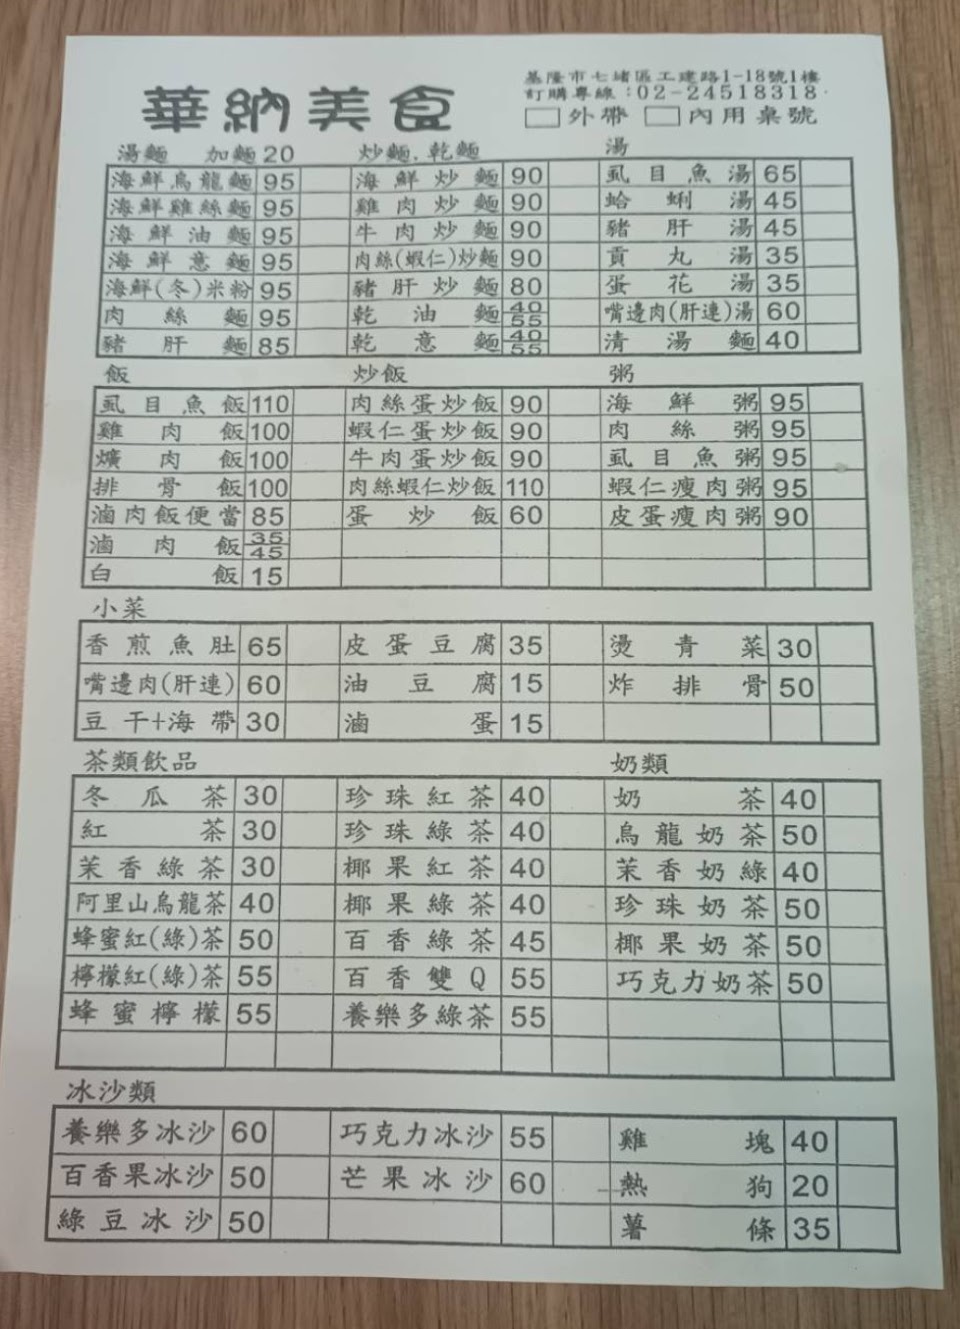 華納美食
基隆市七堵區工建路1-18號1樓
訂購專線:02-24518318
外帶 內用桌號
湯麵 加麵20 炒麵.乾麵 湯
海鮮烏龍麵 95 海鮮炒麵 90 虱目魚湯 65
海鮮雞絲麵 95 雞肉炒麵 90 蛤蜊湯 45
海鮮油麵 95 牛肉炒麵 90 豬肝湯 45
海鮮意麵 95 肉絲(蝦仁)炒麵 90 貢丸湯 35
海鮮(冬)米粉 95 豬肝炒麵 80 蛋花湯 35
肉絲麵 95 乾油麵 40 55 嘴邊肉(肝連)湯 60
豬肝麵 85 乾意麵 40 55 清湯麵 40
飯 炒飯 粥
虱目魚飯 110 肉絲蛋炒飯 90 海鮮粥 95
雞肉飯 100 蝦仁蛋炒飯 90 肉絲粥 95
爌肉飯 100 牛肉蛋炒飯 90 虱目魚粥 95
排骨飯 100 肉絲蝦仁炒飯 110 蝦仁瘦肉粥 95
滷肉飯便當 85 蛋炒飯 60 皮蛋瘦肉粥 90
滷肉飯 35 45
白飯 15
小菜
香煎魚肚 65 皮蛋豆腐 35 燙青菜 30
嘴邊肉(肝連) 60 油豆腐 15 炸排骨 50
豆干+海帶 30 滷蛋 15
茶類飲品 奶類
冬瓜茶 30 珍珠紅茶 40 奶茶 40
紅茶 30 珍珠綠茶 40 烏龍奶茶 50
茉香綠茶 30 椰果紅茶 40 茉香奶綠 40
阿里山烏龍茶 40 椰果綠茶 40 珍珠奶茶 50
蜂蜜紅(綠)茶 50 百香綠茶 45 椰果奶茶 50
檸檬紅(綠)茶 55 百香雙Q 55 巧克力奶茶 50
蜂蜜檸檬 55 養樂多綠茶 55
冰沙類
養樂多冰沙 60 巧克力冰沙 55 雞塊 40
百香果冰沙 50 芒果冰沙 60 熱狗 20
綠豆冰沙 50 薯條 35